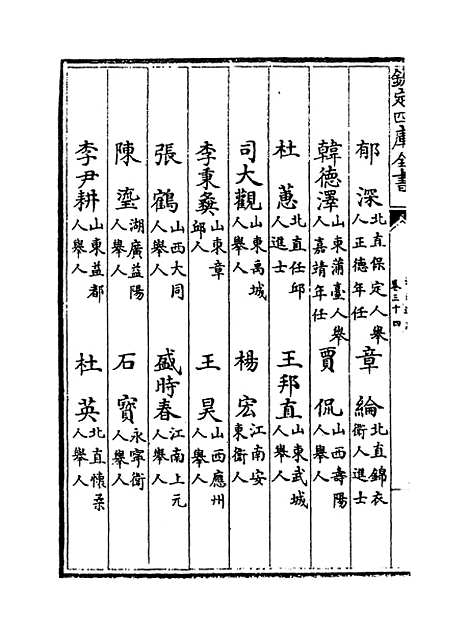 欽定四庫全書
卷三十四
郁深北直保定人舉人正德年任 章綸北直錦衣衛人進士
韓德澤山東蒲臺人舉人嘉靖年任 賈侃山西壽陽人舉人
杜蕙北直任邱人進士 王邦直山東武城人舉人
司大觀山東禹城人舉人 楊宏江南安東衛人
李秉彝山東章邱人 王昊山西應州人舉人
張鶴山西大同人舉人 盛時春江南上元人舉人
陳瑬湖廣益陽人舉人 石寳永寧衛人舉人
李尹耕山東益都人舉人 杜英北直懷柔人舉人